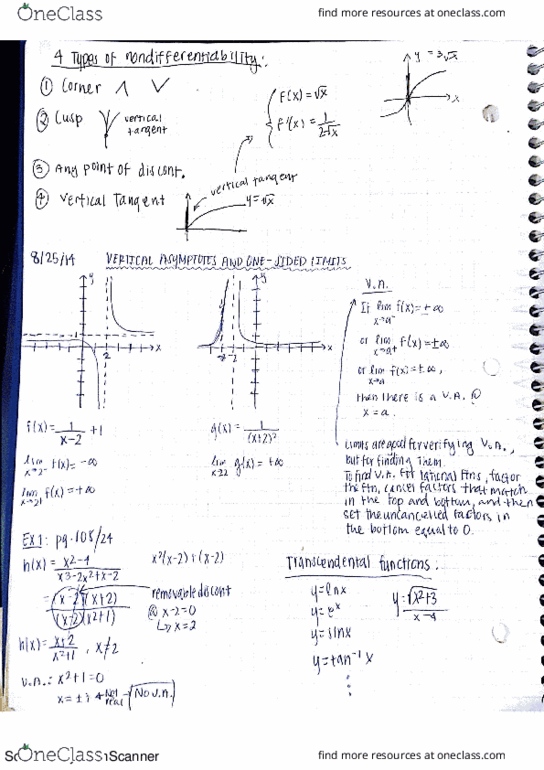 OneClass
find more resources at oneclass.com
4 Types of nondifferentiability:
① Corner
② Cusp
vertical tangent
③ Any point of discont.
④ Vertical Tangent
f(x)=√x
f'(x)=1/(2√x)
vertical tangent
y=√x
y=3√x
x
8/25/14
VERTICAL ASYMPTOTES AND ONE-SIDED LIMITS
y
x
2
y
x
-2
f(x)=1/(x-2) +1
lim x→2⁻ f(x)=-∞
lim x→2⁺ f(x)=+∞
g(x)=1/(x+2)²
g(x)=+∞
V.A.
If lim x→a⁻ f(x)=±∞
or lim x→a⁺ f(x)=±∞
or lim x→a f(x)=±∞,
then there is a V.A. @
x=a.
Limits are good for verifying V.A.,
but for finding them.
To find V.A. for rational ftns, factor
the ftn, cancel factors that match
in the top and bottom, and then
set the uncancelled factors in
the bottom equal to 0.
Ex1: pg.108/24
h(x)=(x²-4)/(x³-2x²+x-2)
x²(x-2)+(x-2)
=(x-2)(x+2)/(x-2)(x²+1)
removable discont
@ x-2=0
↳ x=2
h(x)=(x+2)/(x²+1), x≠2
V.A.: x²+1=0
x=±i ← Not real
No V.A.
Transcendental functions:
y=lnx
y=eˣ
y=sinx
y=tan⁻¹x
y=√(x²+3)/(x-4)
OneClass
Scanner
find more resources at oneclass.com